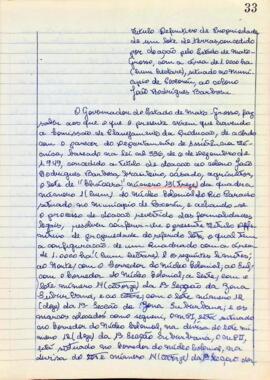 33
Título Definitivo de Propriedade
de um lote de terras, concedido
por doação pelo Estado de Mato-
Grosso, com a área de 1.000 ha
(um hectare), situado no Muni-
cípio de , ao colono
João Rodrigues Barbosa.
O Governador do Estado de Mato-Grosso, faz
saber aos que o presente virem que havendo
a Comissão de Planejamento da Produção, de acôrdo
com o parecer do Departamento de
, baseado na lei nº 336, de 6 de Dezembro de
1949, concedido a título de doação ao colono João
Rodrigues Barbosa, brasileiro, casado, agricultor,
o lote de "Chácara" número 13 (treze) da quadra
número 1 (um) do Núcleo Colonial do
situado no Município de e achando-se
o processo de doação revestido das formalidades
legais, resolveu que o presente título defi-
nitivo de propriedade do referido lote, o qual tem
a configuração de um quadrado com a área
de 1.000 ha (um hectare) e os seguintes limites:
ao Norte, com o Núcleo Colonial, ao Sul,
com o do Núcleo Colonial, a Leste, com o
lote número 14 (catorze) da 1ª Secção da Zona
Suburbana, e ao Oeste, com o lote número 12
(doze) da 1ª Secção da Zona Suburbana; e os
marcos colocados como seguem: o nº 1,
no do Núcleo Colonial, na divisa do lote nú-
mero 12 (doze) da 1ª Secção Suburbana, o nº 2,
situado no do Núcleo Colonial, na
divisa do lote número 14 (catorze) da 1ª Secção da